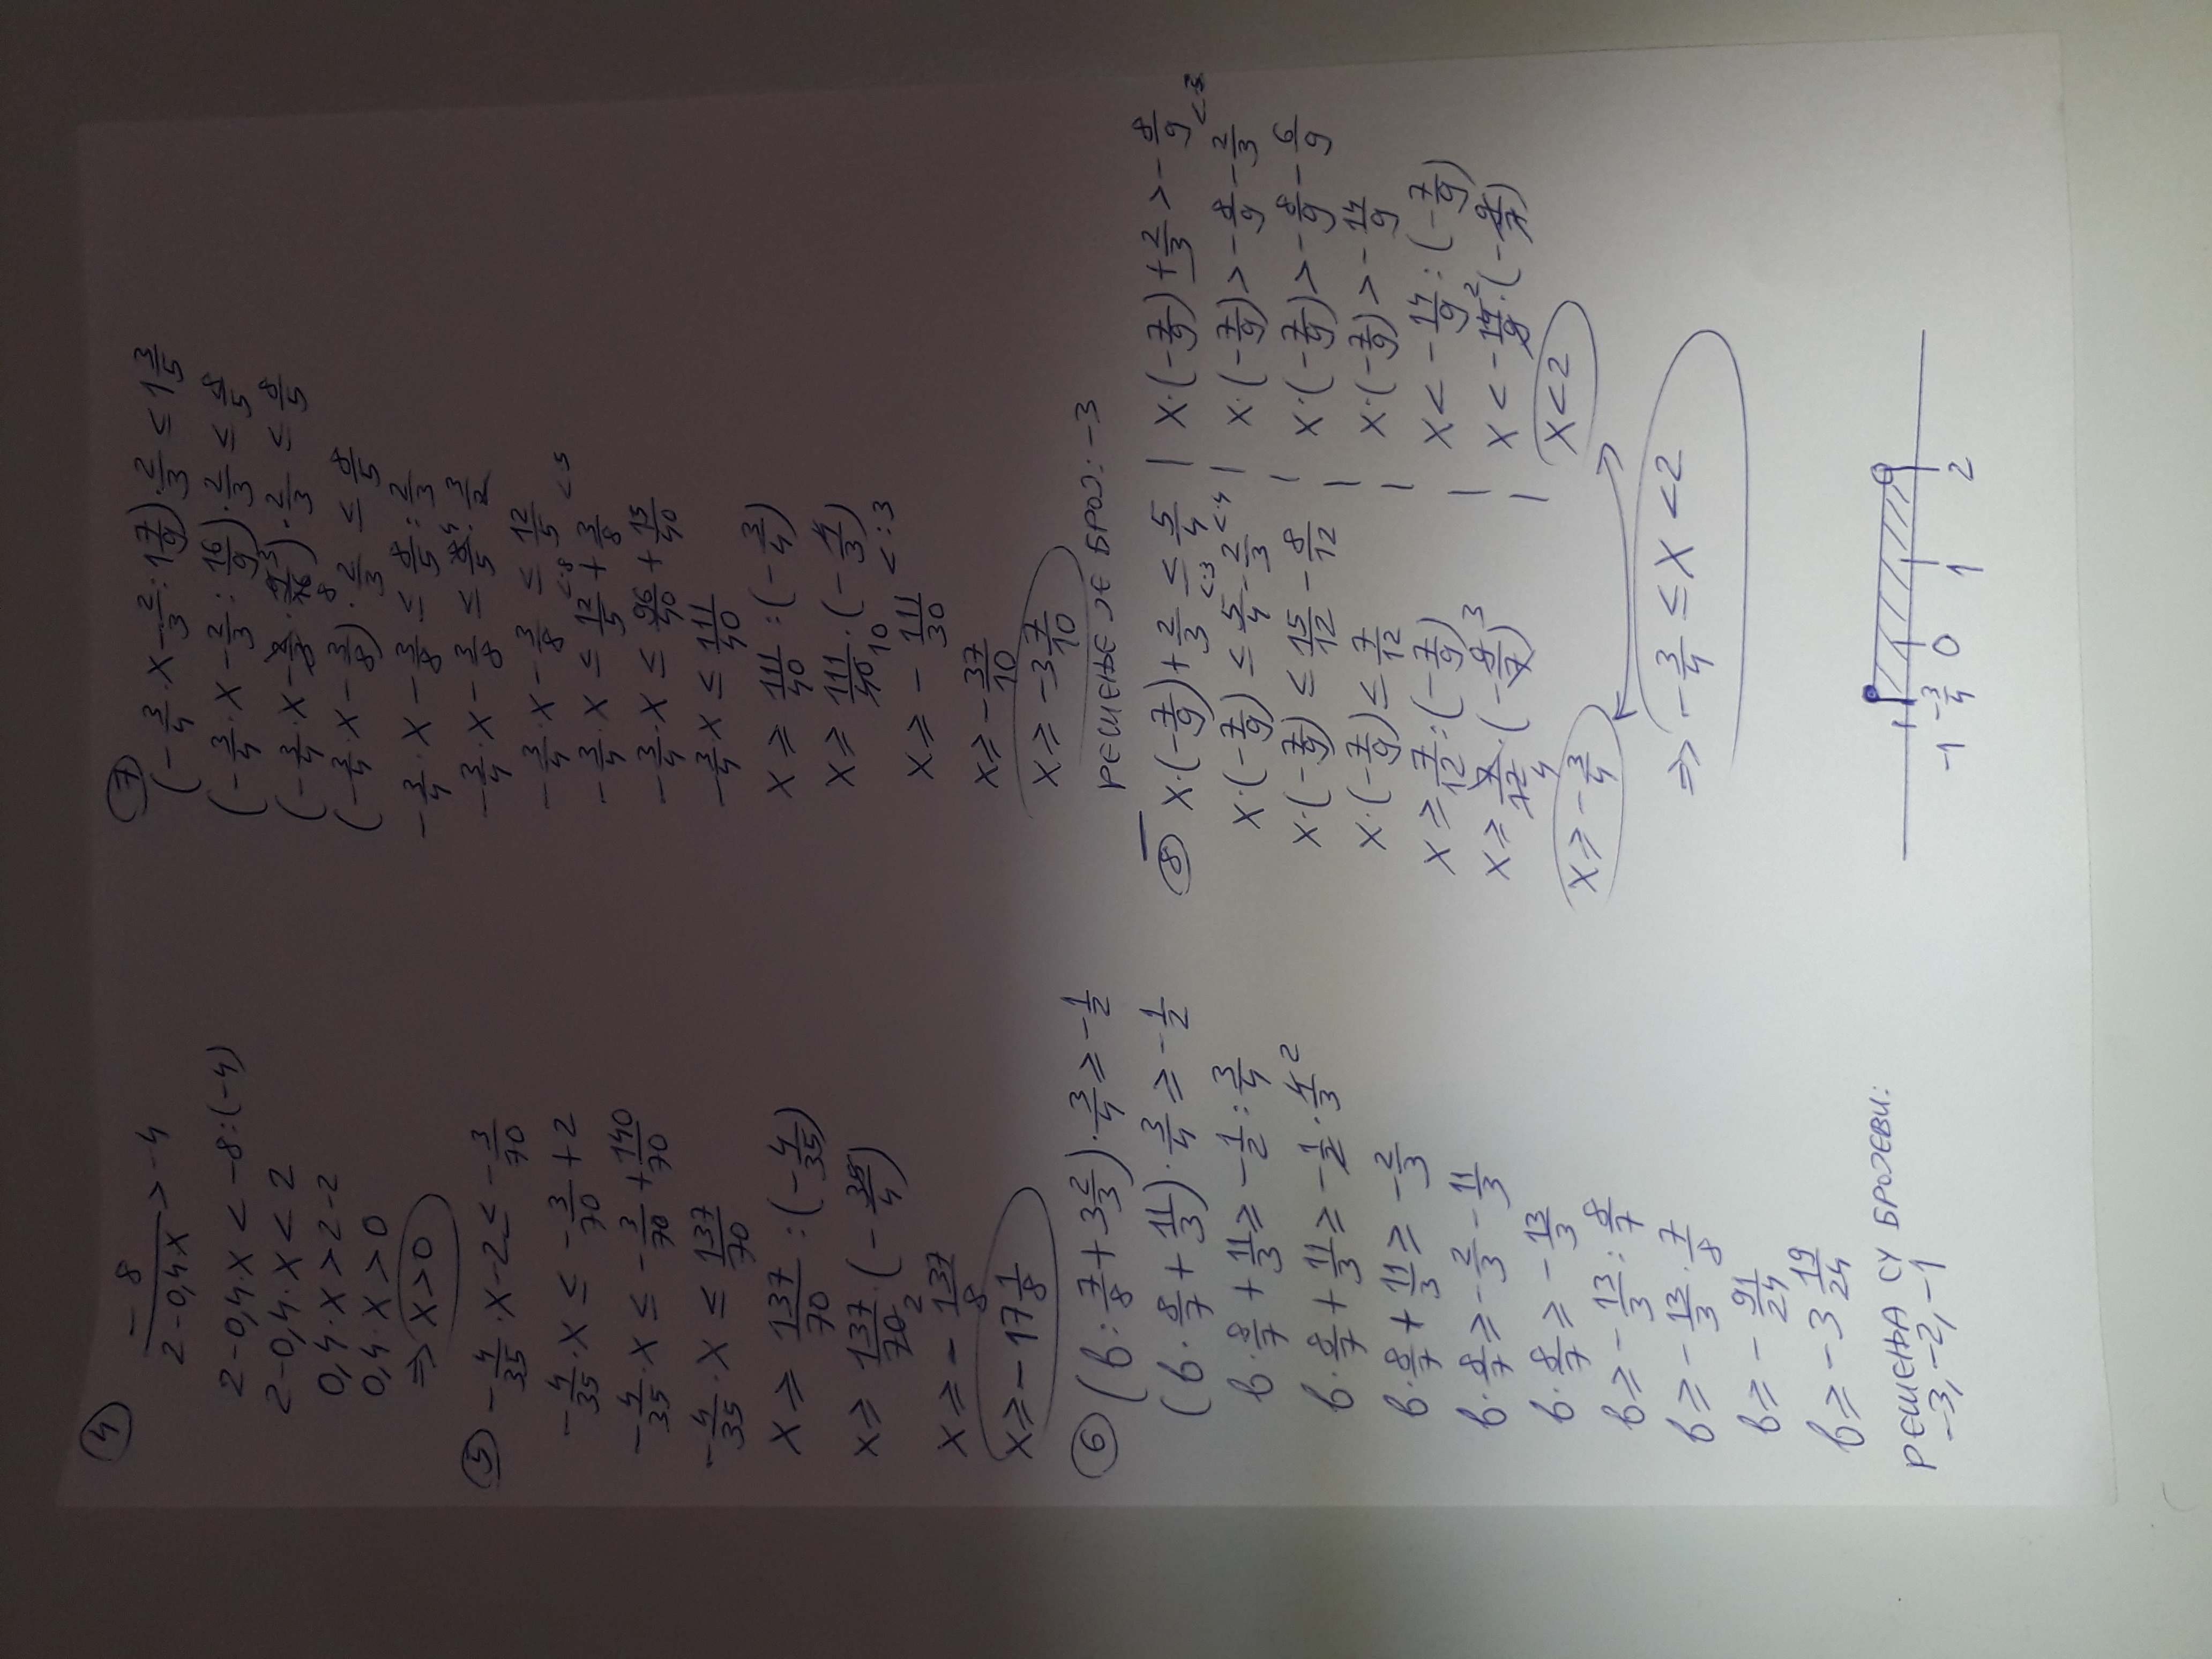 ④
-8/(2-0,4x) > -4
2-0,4·x < -8:(-4)
2-0,4·x < 2
0,4·x > 2-2
0,4·x > 0
⇒ x>0
⑤ -4/35·x-2 ≤ -3/70
-4/35·x ≤ -3/70+2
-4/35·x ≤ -3/70+140/70
-4/35·x ≤ 137/70
x ≥ 137/70:(-4/35)
x ≥ 137/70 2·(-35/4)
x ≥ -137/8
x ≥ -17 1/8
⑥ (b:7/8+3 2/3)·3/4 ≥ -1/2
(b·8/7+11/3)·3/4 ≥ -1/2
b·8/7+11/3 ≥ -1/2:3/4
b·8/7+11/3 ≥ -1/2·4/3 2
b·8/7+11/3 ≥ -2/3
b·8/7 ≥ -2/3-11/3
b·8/7 ≥ -13/3
b ≥ -13/3:8/7
b ≥ -13/3·7/8
b ≥ -91/24
b ≥ -3 19/24
РЕШЕЊА СУ БРОЈЕВИ:
-3, -2, -1
⑦
(-3/4·x-2/3:1 7/9)·2/3 ≤ 1 3/5
(-3/4·x-2/3:16/9)·2/3 ≤ 8/5
(-3/4·x-2/3·9/16 3 8)·2/3 ≤ 8/5
(-3/4·x-3/8)·2/3 ≤ 8/5
-3/4·x-3/8 ≤ 8/5:2/3
-3/4·x-3/8 ≤ 8/5 4·3/2
-3/4·x-3/8 ≤ 12/5
-3/4·x ≤ 12/5 <·8 +3/8 <·5
-3/4·x ≤ 96/40+15/40
-3/4·x ≤ 111/40
x ≥ 111/40:(-3/4)
x ≥ 111/40 10·(-4/3)
x ≥ -111/30 <:3
x ≥ -37/10
x ≥ -3 7/10
РЕШЕЊЕ ЈЕ БРОЈ: -3
⑧ x·(-7/9)+2/3 ≤ 5/4 | x·(-7/9)+2/3 > -8/9
x·(-7/9) ≤ 5/4 <·3 -2/3 <·4 | x·(-7/9) > -8/9-2/3 <·3
x·(-7/9) ≤ 15/12-8/12 | x·(-7/9) > -8/9-6/9
x·(-7/9) ≤ 7/12 | x·(-7/9) > -14/9
x ≥ 7/12:(-7/9) | x < -14/9:(-7/9)
x ≥ 7/12 4·(-9/7) 3 | x < -14/9 2·(-9/7)
x ≥ -3/4 | x < 2
⇒ -3/4 ≤ x < 2
-1 -3/4 0 1 2